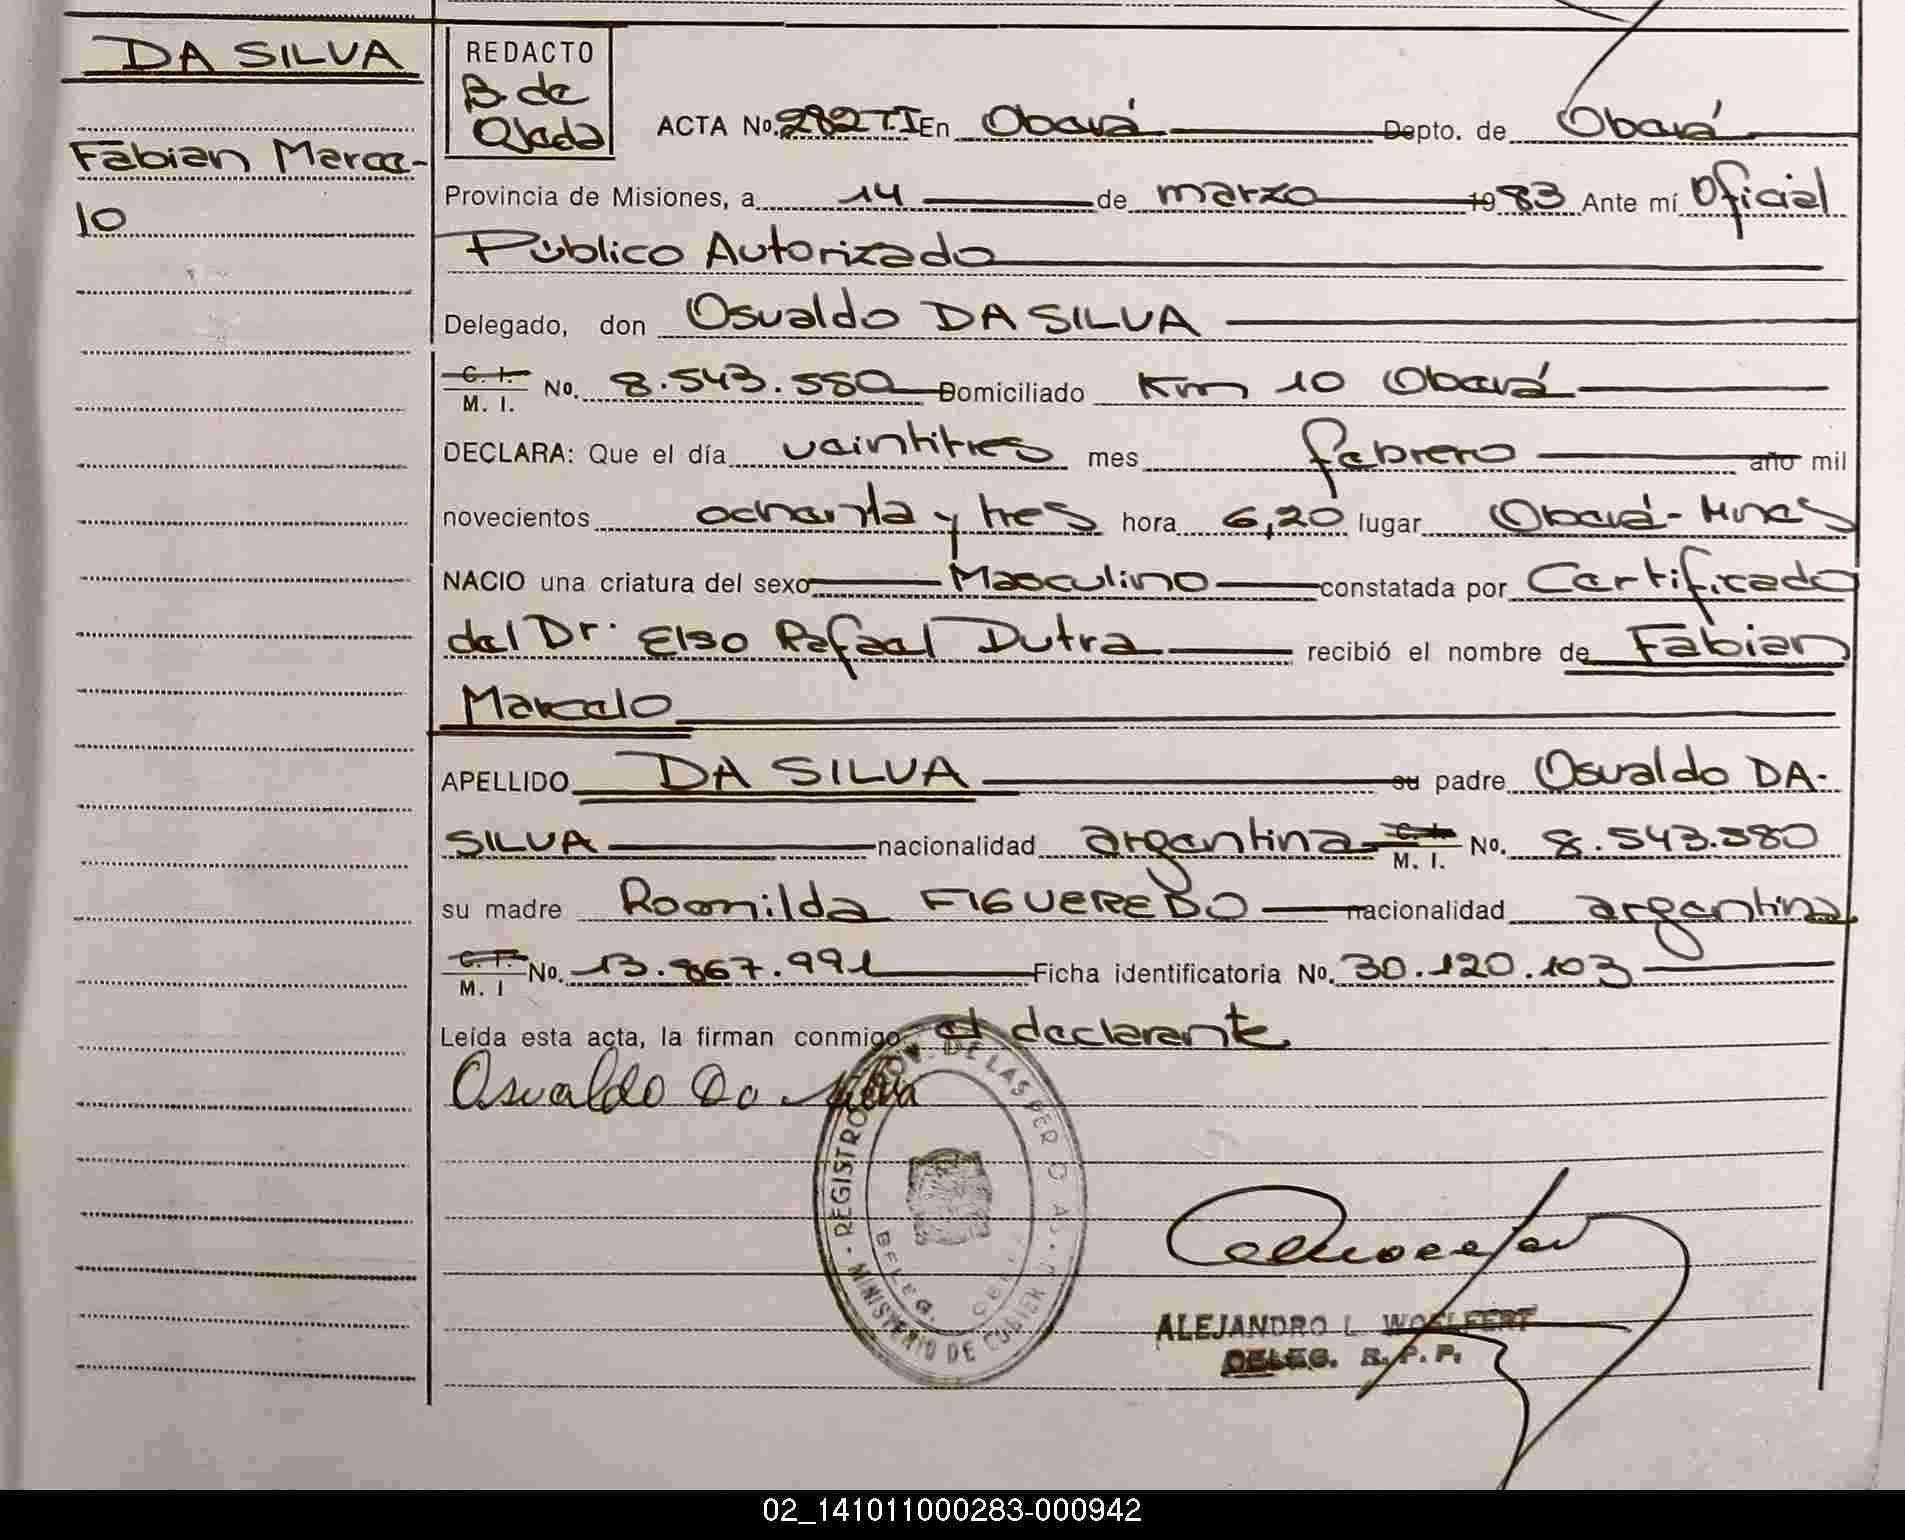 DA SILVA
Fabian Marce-
lo
REDACTO
B. de
Ojeda
ACTA No. 282 T.I En Oberá Depto. de Oberá
Provincia de Misiones, a 14 de marzo 1983 Ante mí Oficial
Público Autorizado
Delegado, don Osvaldo DA SILVA
C. I. M. I. No. 8.543.580 Domiciliado Km 10 Oberá
DECLARA: Que el día veintitres mes febrero año mil
novecientos ochenta y tres hora 6,20 lugar Oberá - Mnes
NACIO una criatura del sexo Masculino constatada por Certificado
del Dr. Elso Rafael Dutra recibió el nombre de Fabian
Marcelo
APELLIDO DA SILVA su padre Osvaldo DA-
SILVA nacionalidad argentina C. I. M. I. No. 8.543.580
su madre Romilda FIGUEREDO nacionalidad argentina
C. I. M. I No. 13.867.991 Ficha identificatoria No. 30.120.103
Leída esta acta, la firman conmigo el declarante
Osvaldo Da Silva
REGISTRO PROV. DE LAS PER
MINISTERIO DE
DELEG.
ALEJANDRO L. WOELFERT
DELEG. R. P. P.
02_141011000283-000942